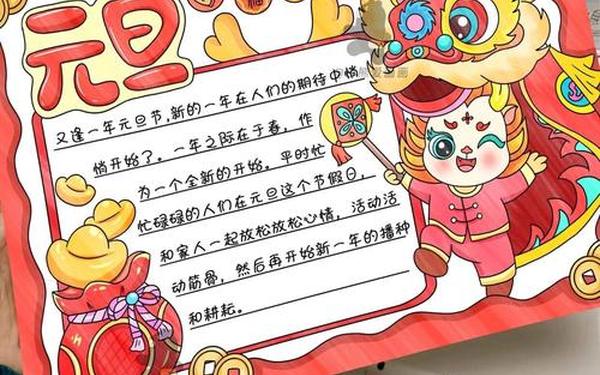 元旦
又逢一年元旦节,新的一年在人们的期待中悄
悄开始了。一年之际在于春，作
为一个全新的开始。平时忙
忙碌碌的人们在元旦这个节假日，
和家人一起放松放松心情，活动活
动筋骨，然后再开始新一年的播种
和耕耘。